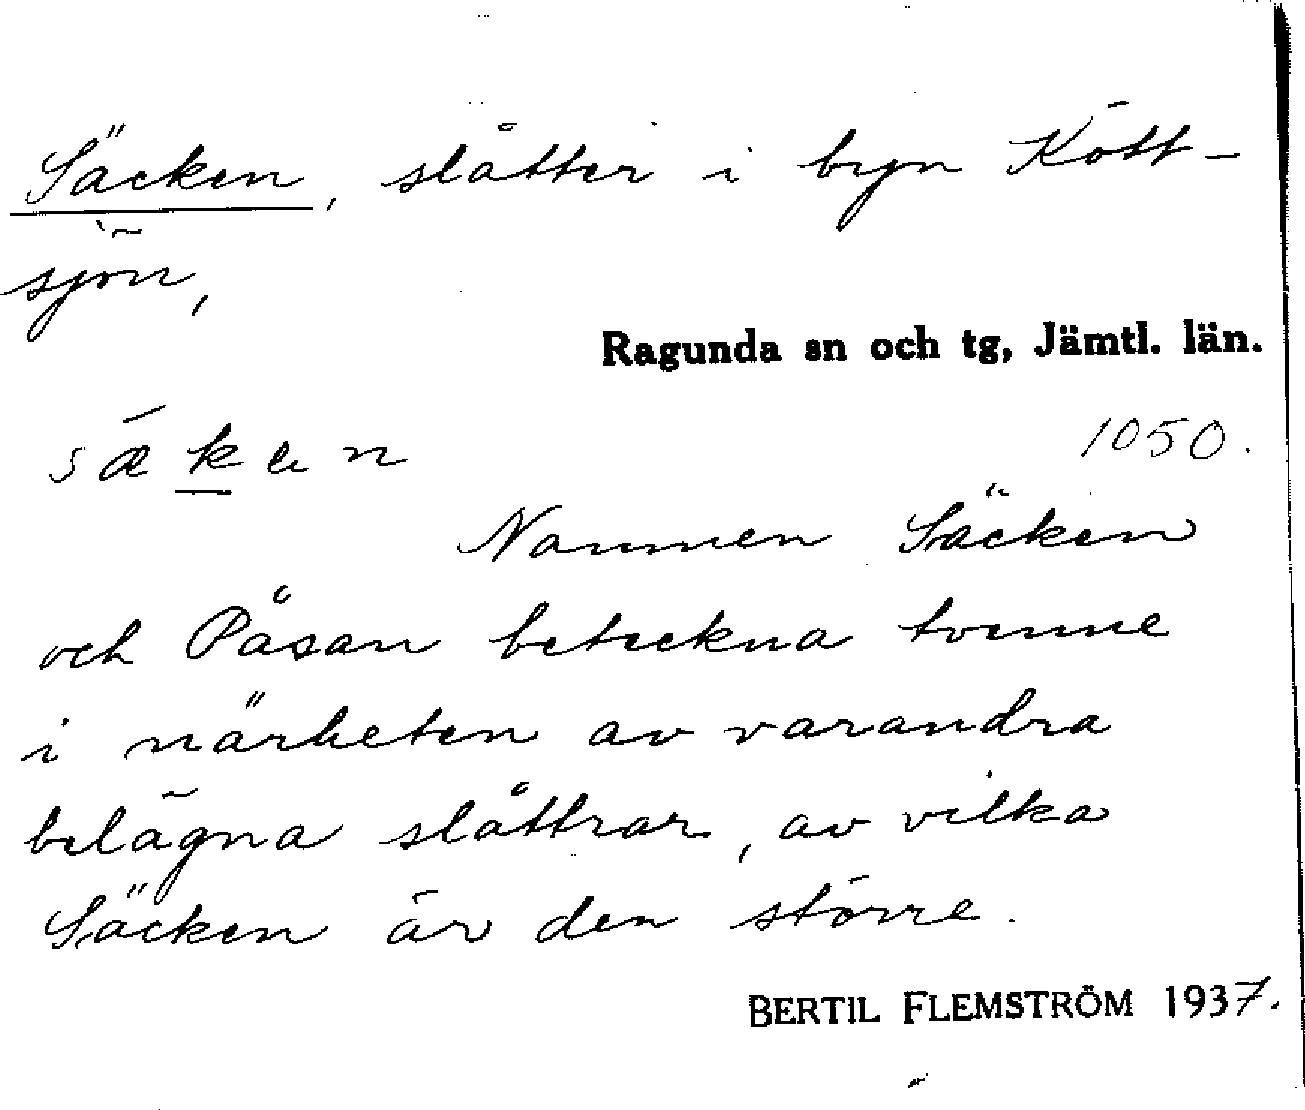 Säcken, slåtter i byn Kött-
sjön,
Ragunda sn och tg, Jämtl. län.
sǽk̲en
1050.
Namnen Säcken
och Påsan beteckna tvenne
i närheten av varandra
belägna slåttrar, av vilka
Säcken är den större.
BERTIL FLEMSTRÖM 1937.